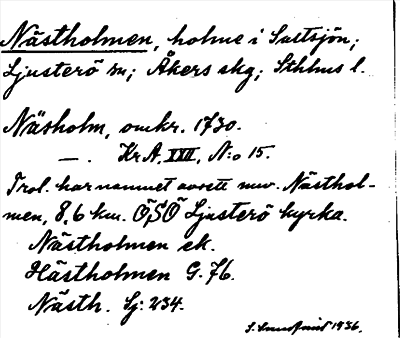 Nästholmen, holme i Saltsjön;
Ljusterö sn; Åkers skg; Sthlms l.
Näsholm, omkr. 1730.
—. KrA, XXII, N:o 15.
Trol. har namnet avsett nuv. Nästhol-
men, 8,6 km. ÖSÖ Ljusterö kyrka.
Nästholmen ek.
Hästholmen G. 76.
Nästh. Sj: 234.
1936.